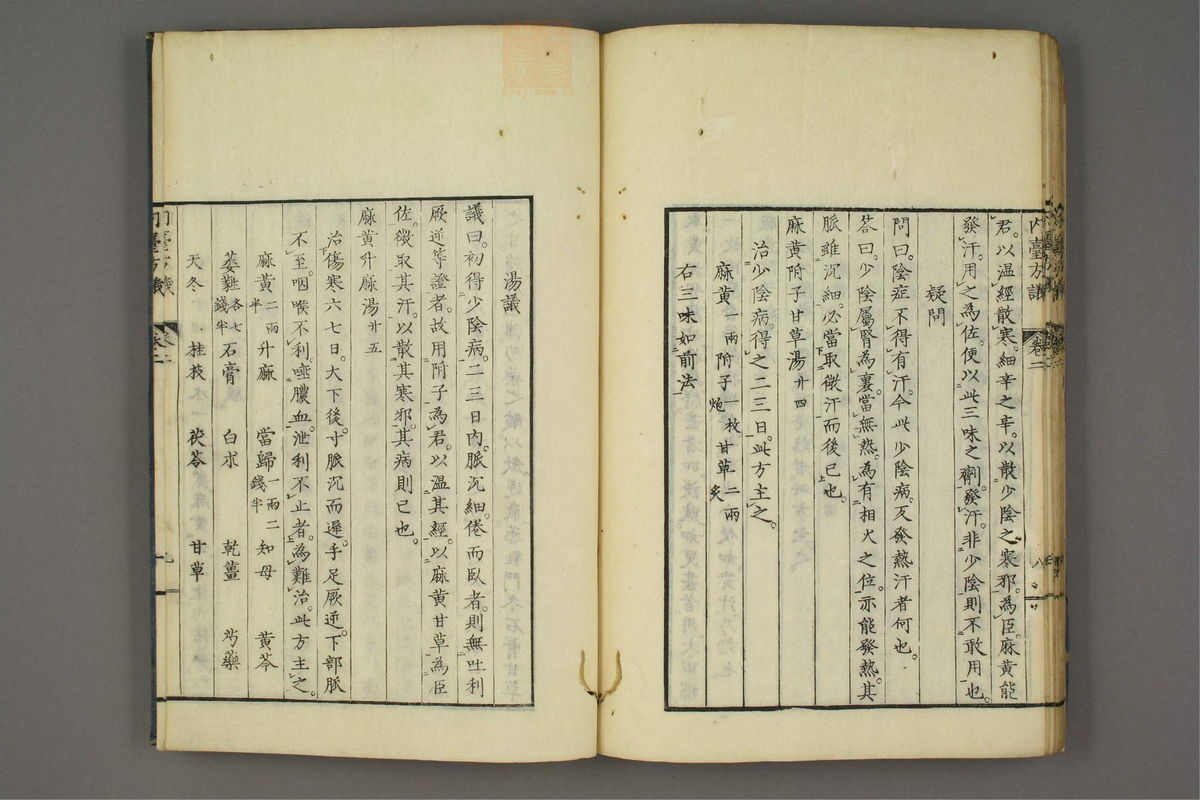 內臺方議 卷二 八
君。以溫經散寒。細辛之辛。以散少陰之寒邪。為臣。麻黃能
發汗。用之為佐。便以此三味之劑。發汗。非少陰則不敢用也。
疑問
問曰。陰症不得有汗。今此少陰病。反發熱汗者何也。
答曰。少陰屬腎為裏。當無熱。為有相火之位。亦能發熱。其
脈雖沉細。必當取微汗而後已也。
麻黃附子甘草湯 廿四
治少陰病。得之二三日。此方主之。
麻黃一兩 附子一枚炮 甘草二兩炙
右三味如前法
湯議
議曰。初得少陰病。二三日內。脈沉細倦而臥者。則無吐利
厥逆等證者。故用附子為君。以溫其經。以麻黃甘草為臣
佐。微取其汗。以散其寒邪。其病則已也。
麻黃升麻湯 廿五
治傷寒六七日。大下後。寸脈沉而遲。手足厥逆。下部脈
不至。咽喉不利。唾膿血。泄利不止者。為難治。此方主之。
麻黃二兩半 升麻 當歸一兩二錢半 知母 黃芩
萎蕤各七錢半 石膏 白朮 乾薑 芍藥
天冬 桂枝 茯苓 甘草
內臺方議 卷二